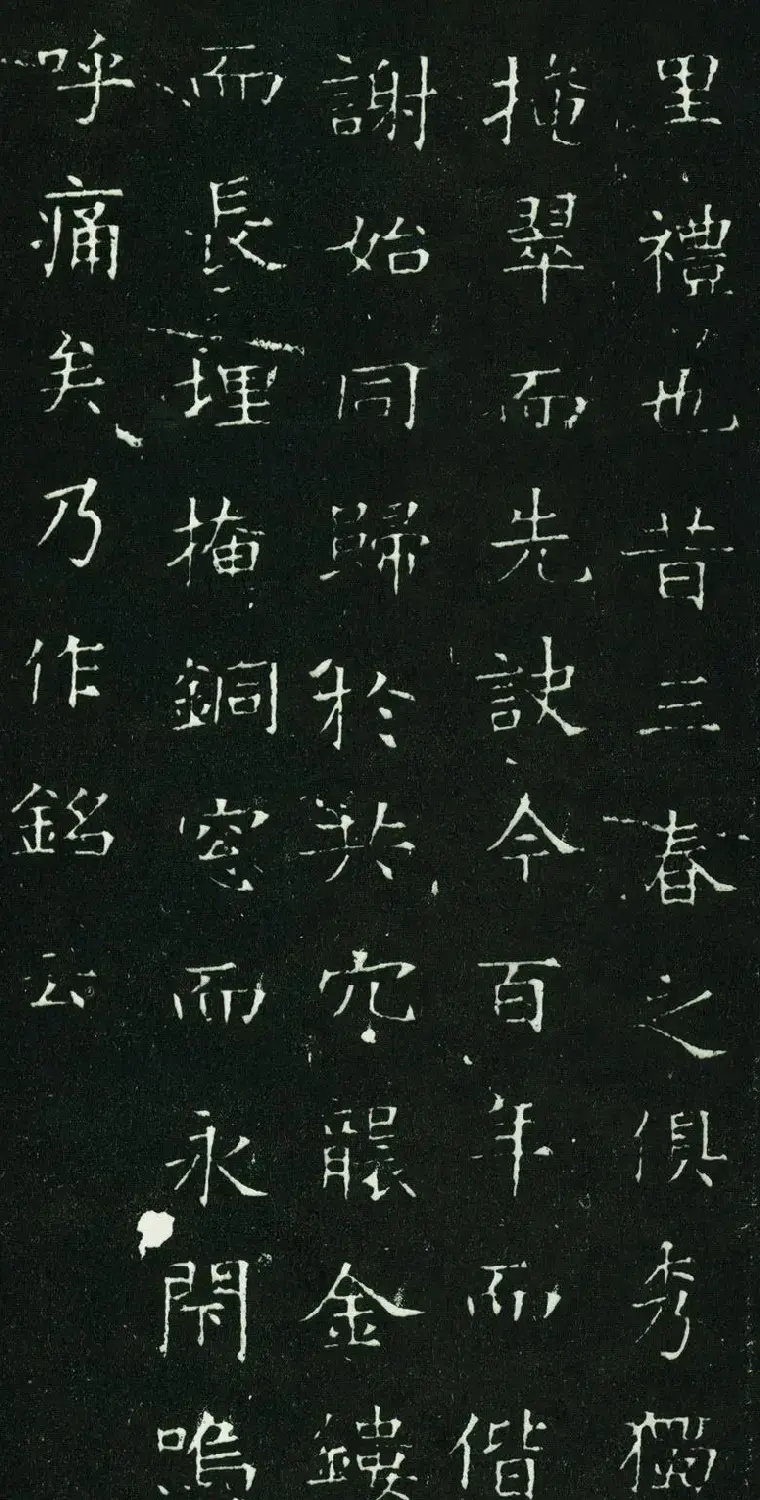 里禮也昔三春之俱秀獨
掩翠而先訣今百年而偕
謝始同歸於共穴襲金鏤
而長埋掩銅窓而永閇嗚
呼痛矣乃作銘云